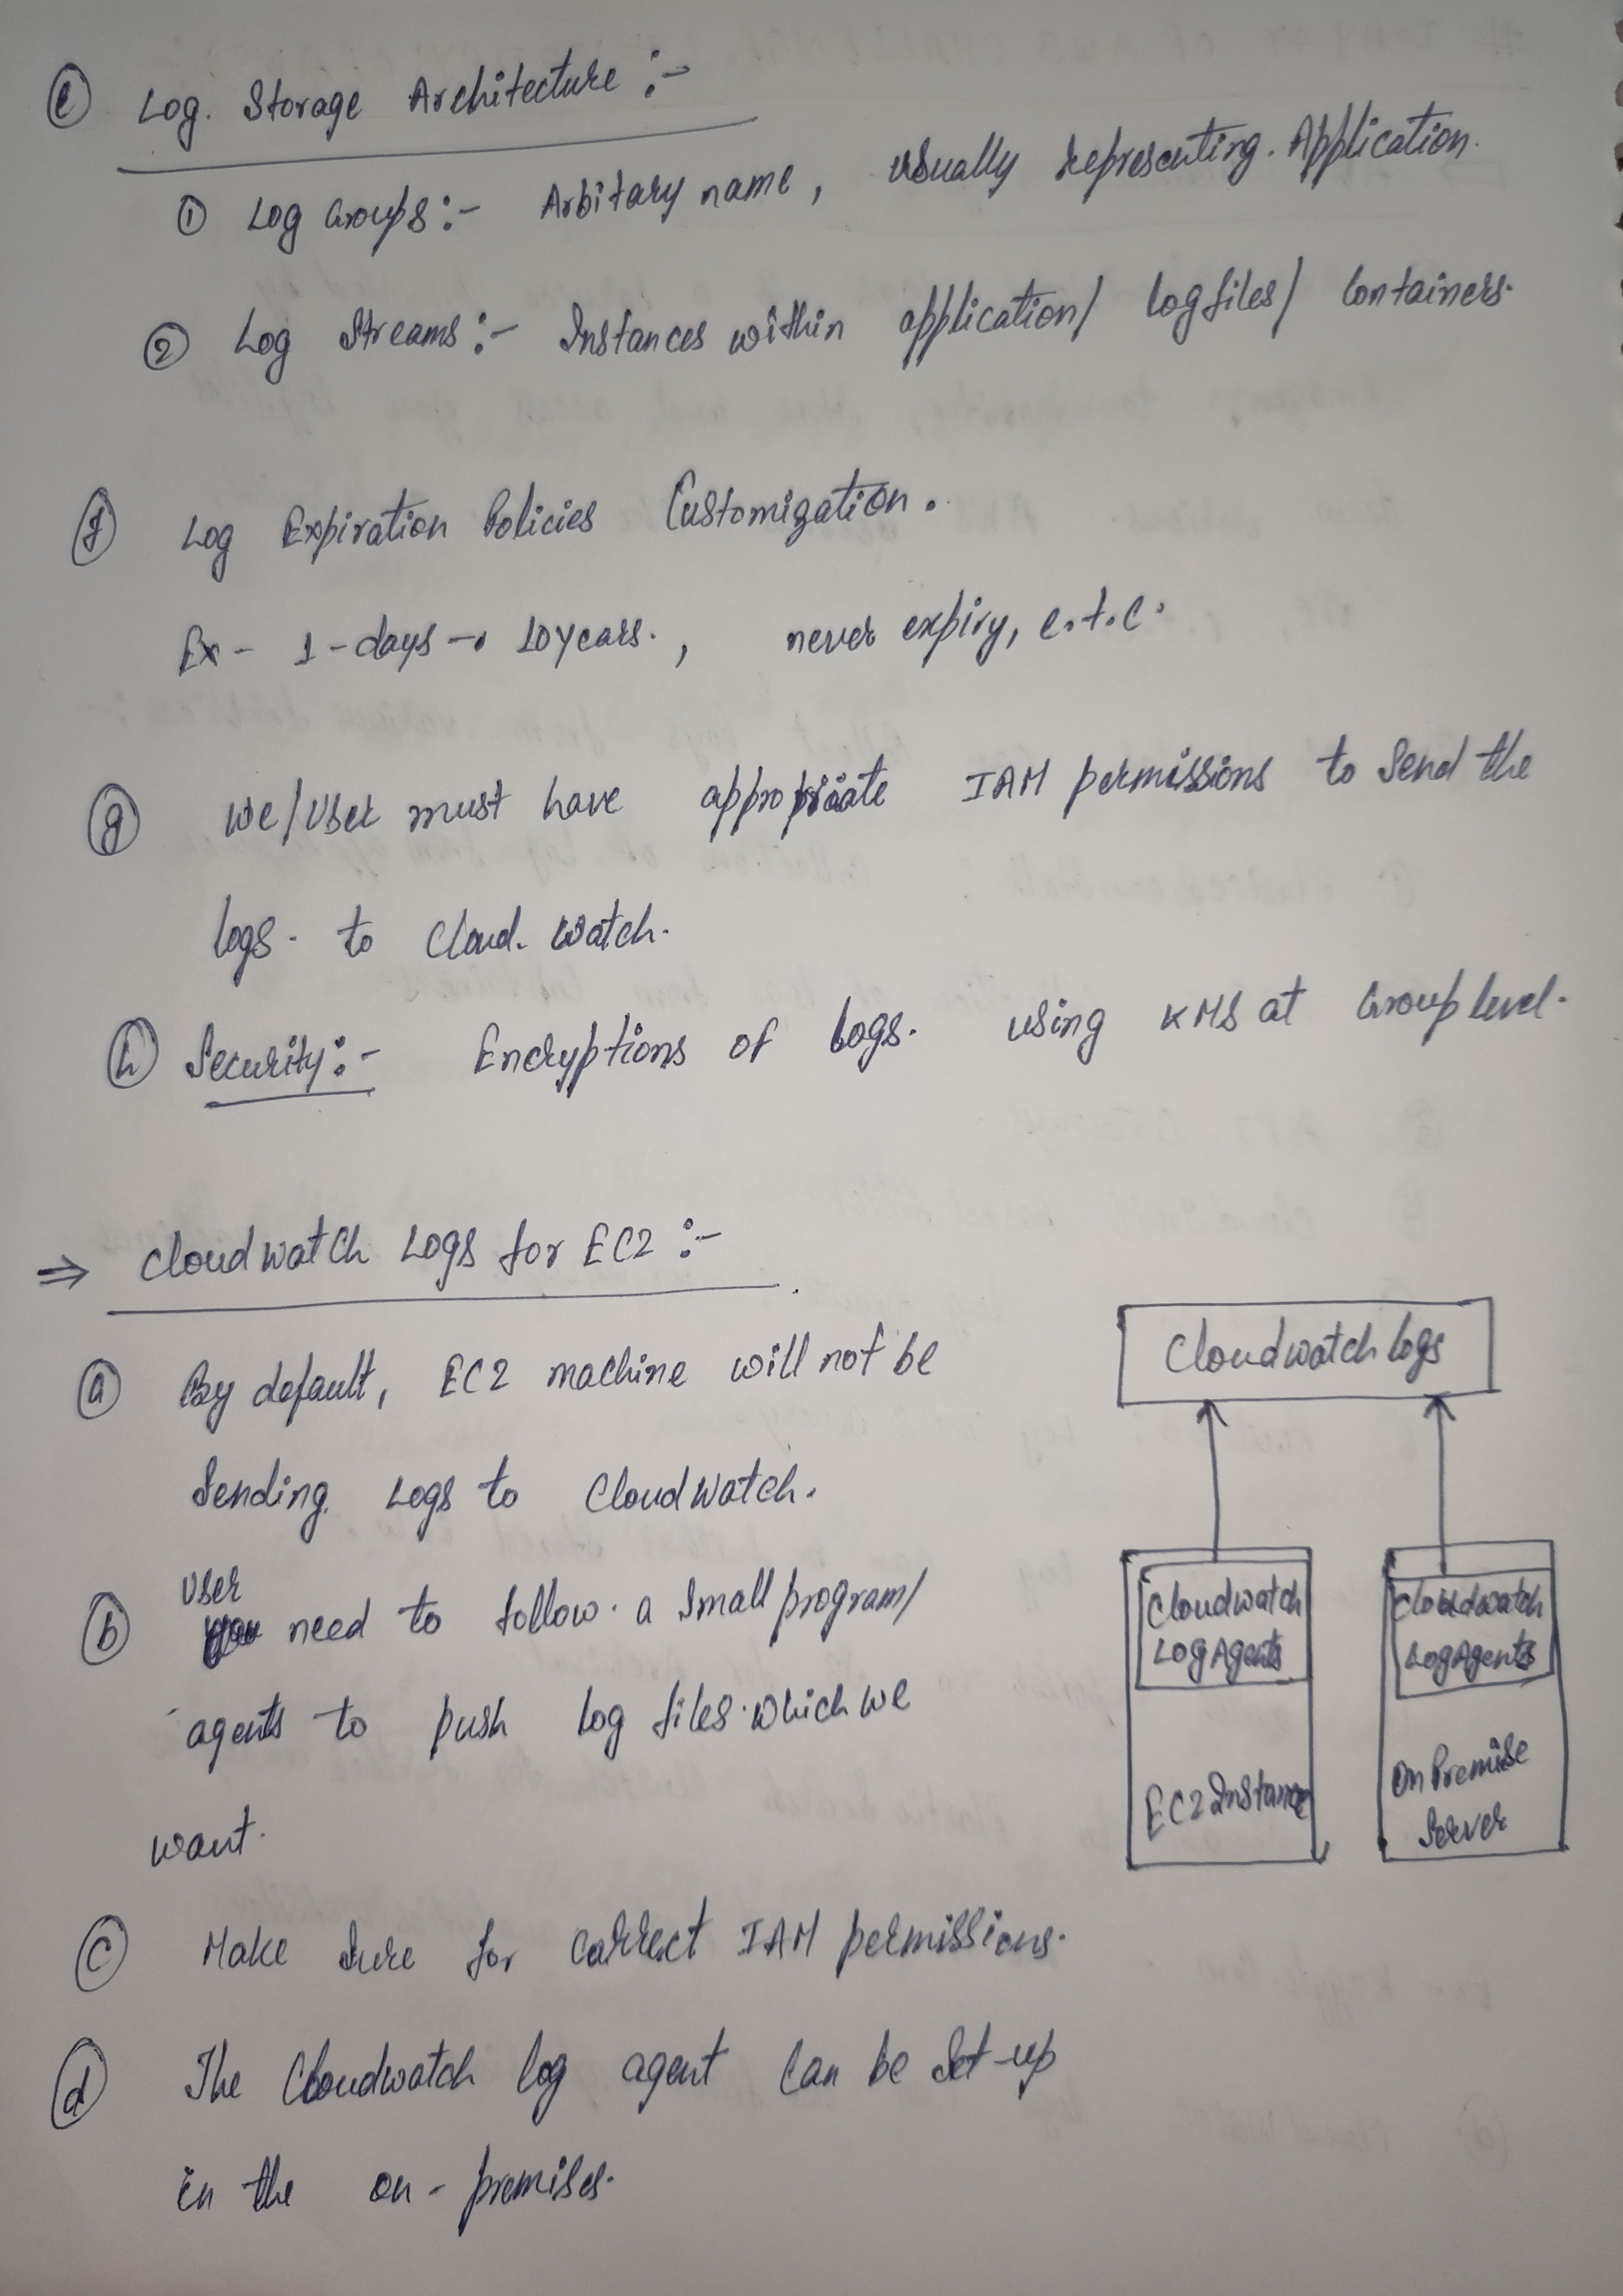 (e) Log. Storage Architecture :-
① Log Groups :- Arbitary name, usually representing. Application.
② Log Streams :- Instances within application/ logfiles/ Containers.
(f) Log Expiration Policies Customization.
Ex - 1-days → 10years., never expiry, e.t.c.
(g) We/User must have appropriate IAM permissions to Send the
logs. to Cloud. Watch.
(h) Security :- Encryptions of logs. using KMS at Group level.
⇒ Cloudwatch Logs for EC2 :-
(a) By default, EC2 machine will not be
Sending. Logs to CloudWatch.
User
(b) need to follow. a Small program/
agents to push log files. which we
want.
(c) Make Sure for Correct IAM permissions.
(d) The Cloudwatch log agent Can be Set-up
in the on-premises.
Cloudwatch logs
Cloudwatch
Log Agents
EC2 Instance
Cloudwatch
Log Agents
On Premise
Server